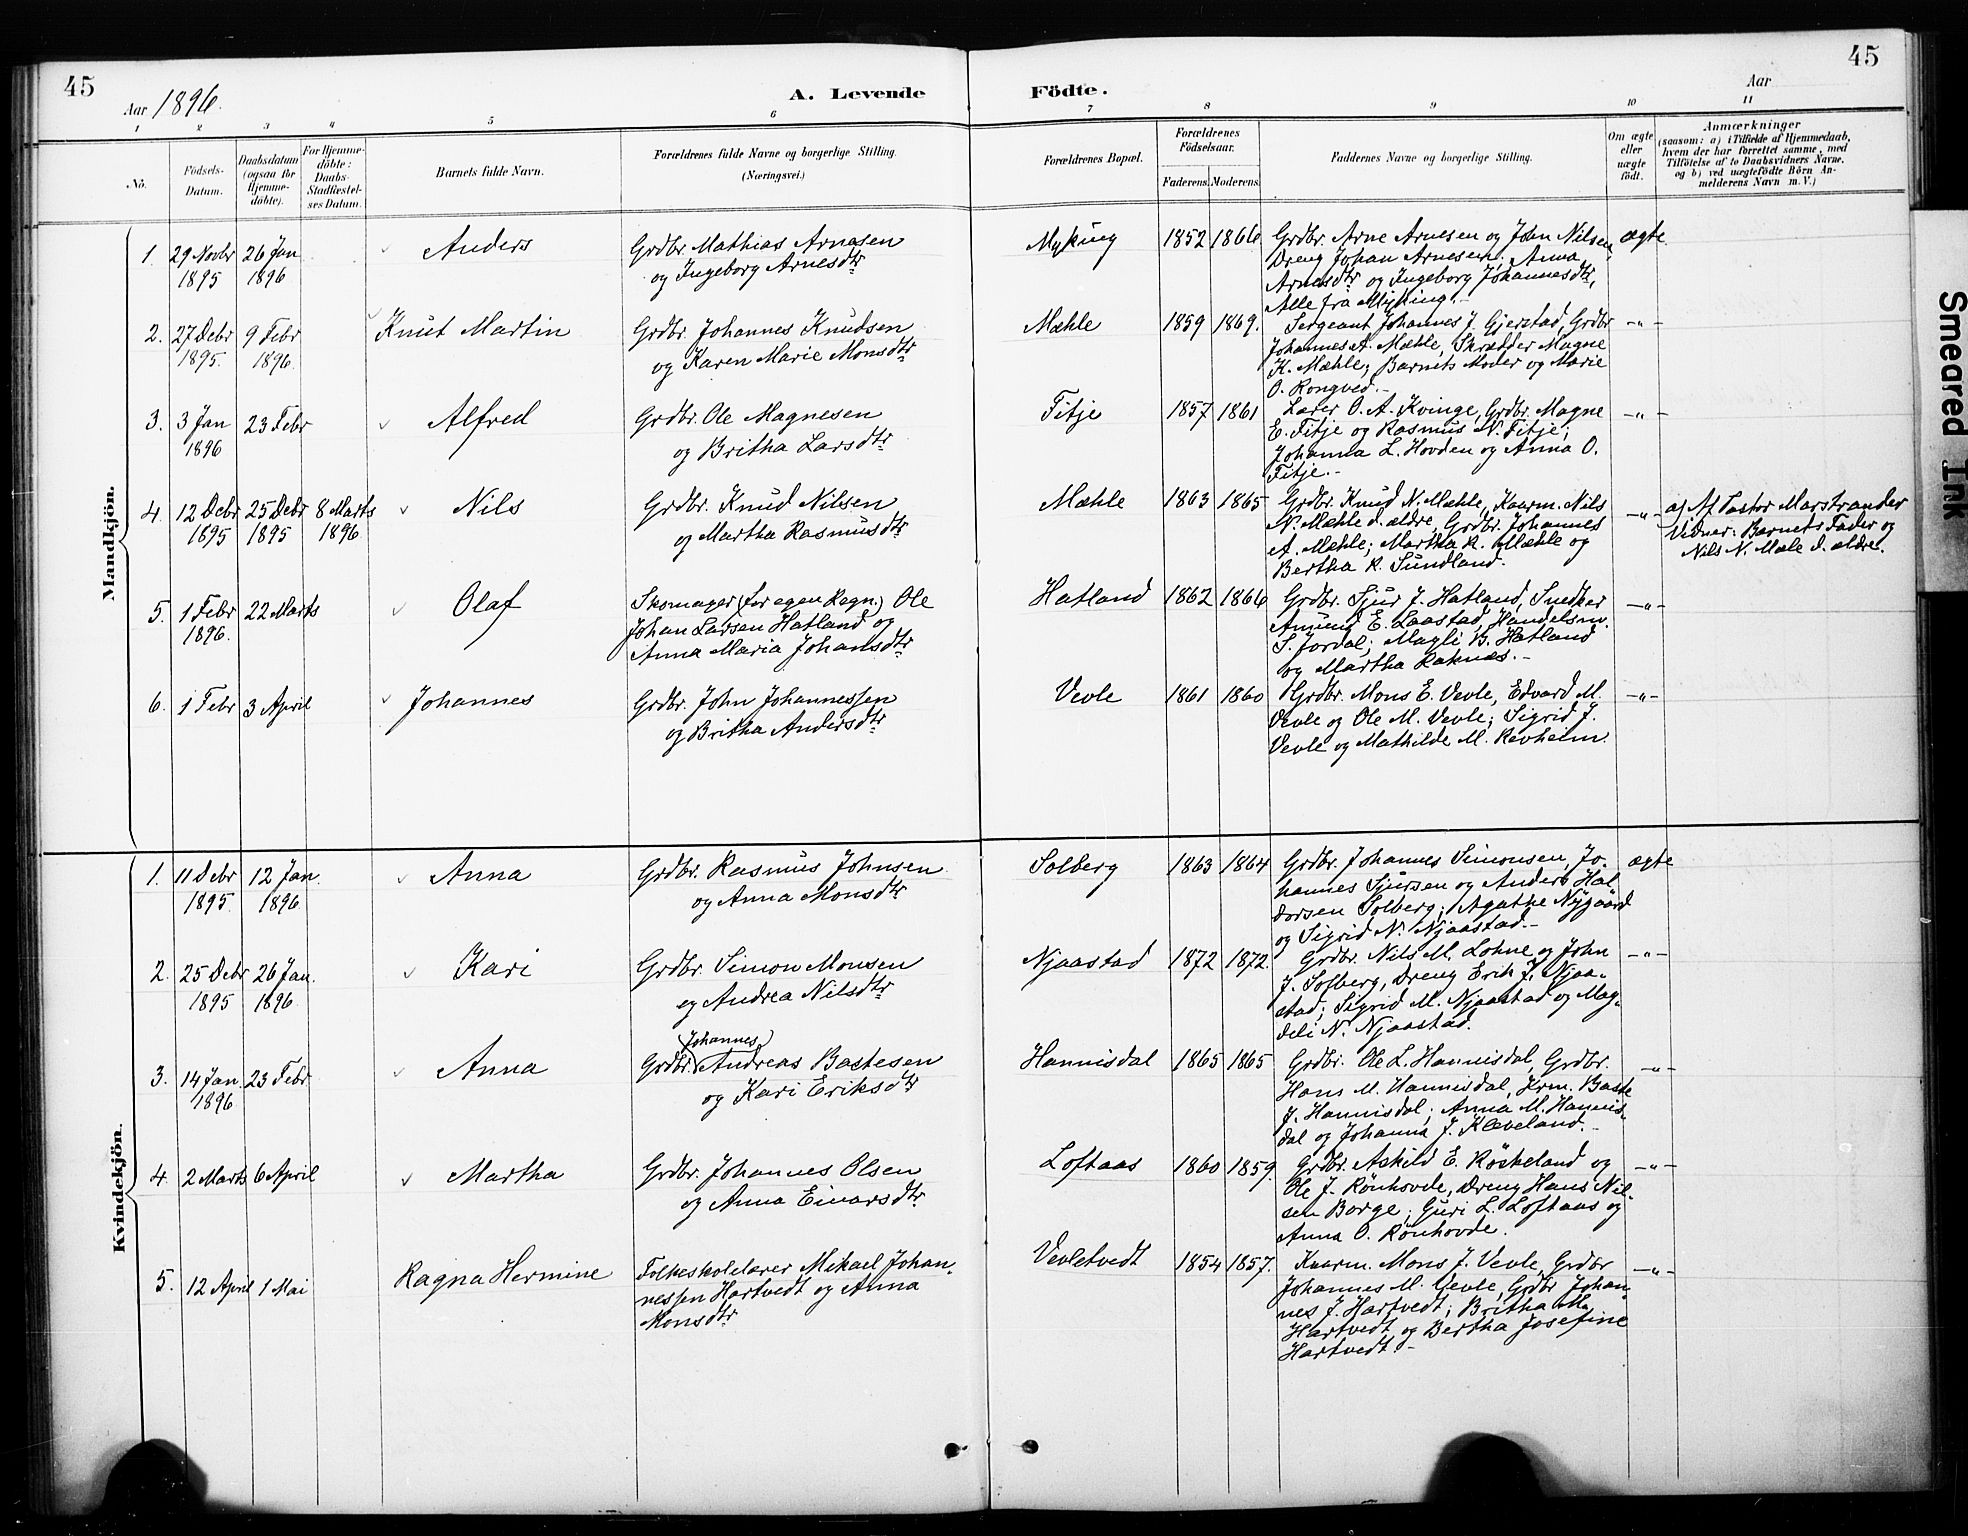 45
Aar 1896.
A. Levende Födte.
Aar
45
1 2 3 4 5 6 7 8 9 10 11
No.
Födsels-Datum.
Daabsdatum (ogsaa for Hjemme-döbte).
For Hjemme-döbte: Daabs-Stadfæstel-ses Datum.
Barnets fulde Navn.
Forældrenes fulde Navne og borgerlige Stilling.
(Næringsvei.)
Forældrenes Bopæl.
Forældrenes Födselsaar.
Faderens. Moderens.
Faddernes Navne og borgerlige Stilling.
Om ægte eller uægte födt.
Anmærkninger
(saasom: a) i Tilfælde af Hjemmedaab, hvem der har forrettet samme, med Tilföielse af to Daabsvidners Navne, og b) ved uægtefödte Börn An-melderens Navn m. V.)
Mandkjön.
1. 29 Novbr 1895 26 Jan 1896 Anders
Grdbr. Mathias Arnesen
og Ingeborg Arnesdtr
Myking 1852 1866
Grdbr. Arne Arnesen og John Nilsen,
Dreng Johan Arnesen; Anna
Arnesdtr og Ingeborg Johannesdtr,
Alle fra Myking.-
ægte.
2. 27 Debr 1895. 9 Febr 1896. Knut Martin
Grdbr. Johannes Knudsen
og Karen Marie Monsdtr
Mæhle 1859 1869.
Sergeant Johannes J. Gjerstad, Grdbr
Johannes A. Mæhle, Skrædder Magne
K. Mæhle; Barnets Moder og Marie
O. Rongved.-
-"-
3. 3 Jan 1896 23 Febr Alfred
Grdbr. Ole Magnesen
og Britha Larsdtr
Fitje 1857 1861
Lærer O. A. Kvinge, Grdbr. Magne
E. Fitje og Rasmus N. Fitje;
Johanna L. Hovden og Anna O.
Fitje.-
-"-
4. 12 Debr 1895 25 Debr 1895 8 Marts 1896 Nils
Grdbr. Knud Nilsen
og Martha Rasmusdtr
Mæhle 1863 1865
Grdbr. Knud N. Mæhle, Kaarm. Nils
N. Mæhle d. ældre, Grdbr. Johannes
A. Mæhle; Martha R. Mæhle og
Bertha R. Sundland.
-"-
a) Af Pastor Marstrander
Vidner: Barnets Fader og
Nils N. Mæle d. ældre.
5. 1 Febr 1896. 22 Marts Olaf
Skomager (for egen Regn.) Ole
Johan Larsen Hatland og
Anna Maria Johansdtr
Hatland 1862 1866
Grdbr. Sjur J. Hatland, Snedker
Amund E. Laastad, Handelsm.
S. Jordal; Magli B. Hatland
og Martha Raknes.-
-"-
6. 1 Febr 3 April Johannes
Grdbr. John Johannessen
og Britha Andersdtr
Vevle 1861 1860
Grdbr. Mons E. Vevle, Edvard M.
Vevle og Ole M. Vevle; Sigrid J.
Vevle og Mathilde M. Revheim.
-"-
Kvindekjön.
1. 11 Debr 1895. 12 Jan. 1896. Anna
Grdbr. Rasmus Johnsen
og Anna Monsdtr
Solberg 1863 1864
Grdbr. Johannes Simonsen, Jo-
hannes Sjursen og Anders Hal-
dorsen Solberg; Agathe Nygaard
og Sigrid N. Njaastad.-
ægte
2. 25 Debr 1895 26 Jan. 1896. Kari
Grdbr. Simon Monsen
og Andrea Nilsdtr
Njaastad 1872 1872.
Grdbr. Nils M. Lohne og John
J. Solberg, Dreng Erik J. Njaa-
stad; Sigrid M. Njaastad og Mag-
deli N. Njaastad.
-"-
3. 14 Jan. 1896 23 Febr Anna
Johannes
Grdbr. Andreas Bastesen
og Kari Eriksdtr
Hannisdal 1865 1865
Grdbr. Ole L. Hannisdal, Grdbr.
Hans M. Hannisdal, Krm. Baste
J. Hannisdal; Anna M. Hannis-
dal og Johanna J. Kleveland.-
-"-
4. 2 Marts 6 April Martha
Grdbr. Johannes Olsen
og Anna Einarsdtr
Loftaas 1860 1859.
Grdbr. Askild E. Röskeland og
Ole J. Rönhovde, Dreng Hans Nil-
sen Borge; Guri L. Loftaas og
Anna O. Rönhovde.
-"-
5. 12 April 1 Mai Ragna Hermine
Folkeskolelærer Mikael Johan-
nessen Hartvedt og Anna
Monsdtr
Vevletvedt 1854 1857.
Kaarm. Mons J. Vevle, Grdbr
Johannes M. Vevle, Grdbr Johan-
nes J. Hartvedt; Britha M.
Hartvedt og Bertha Josefine
Hartvedt.-
-"-
Smeared Ink